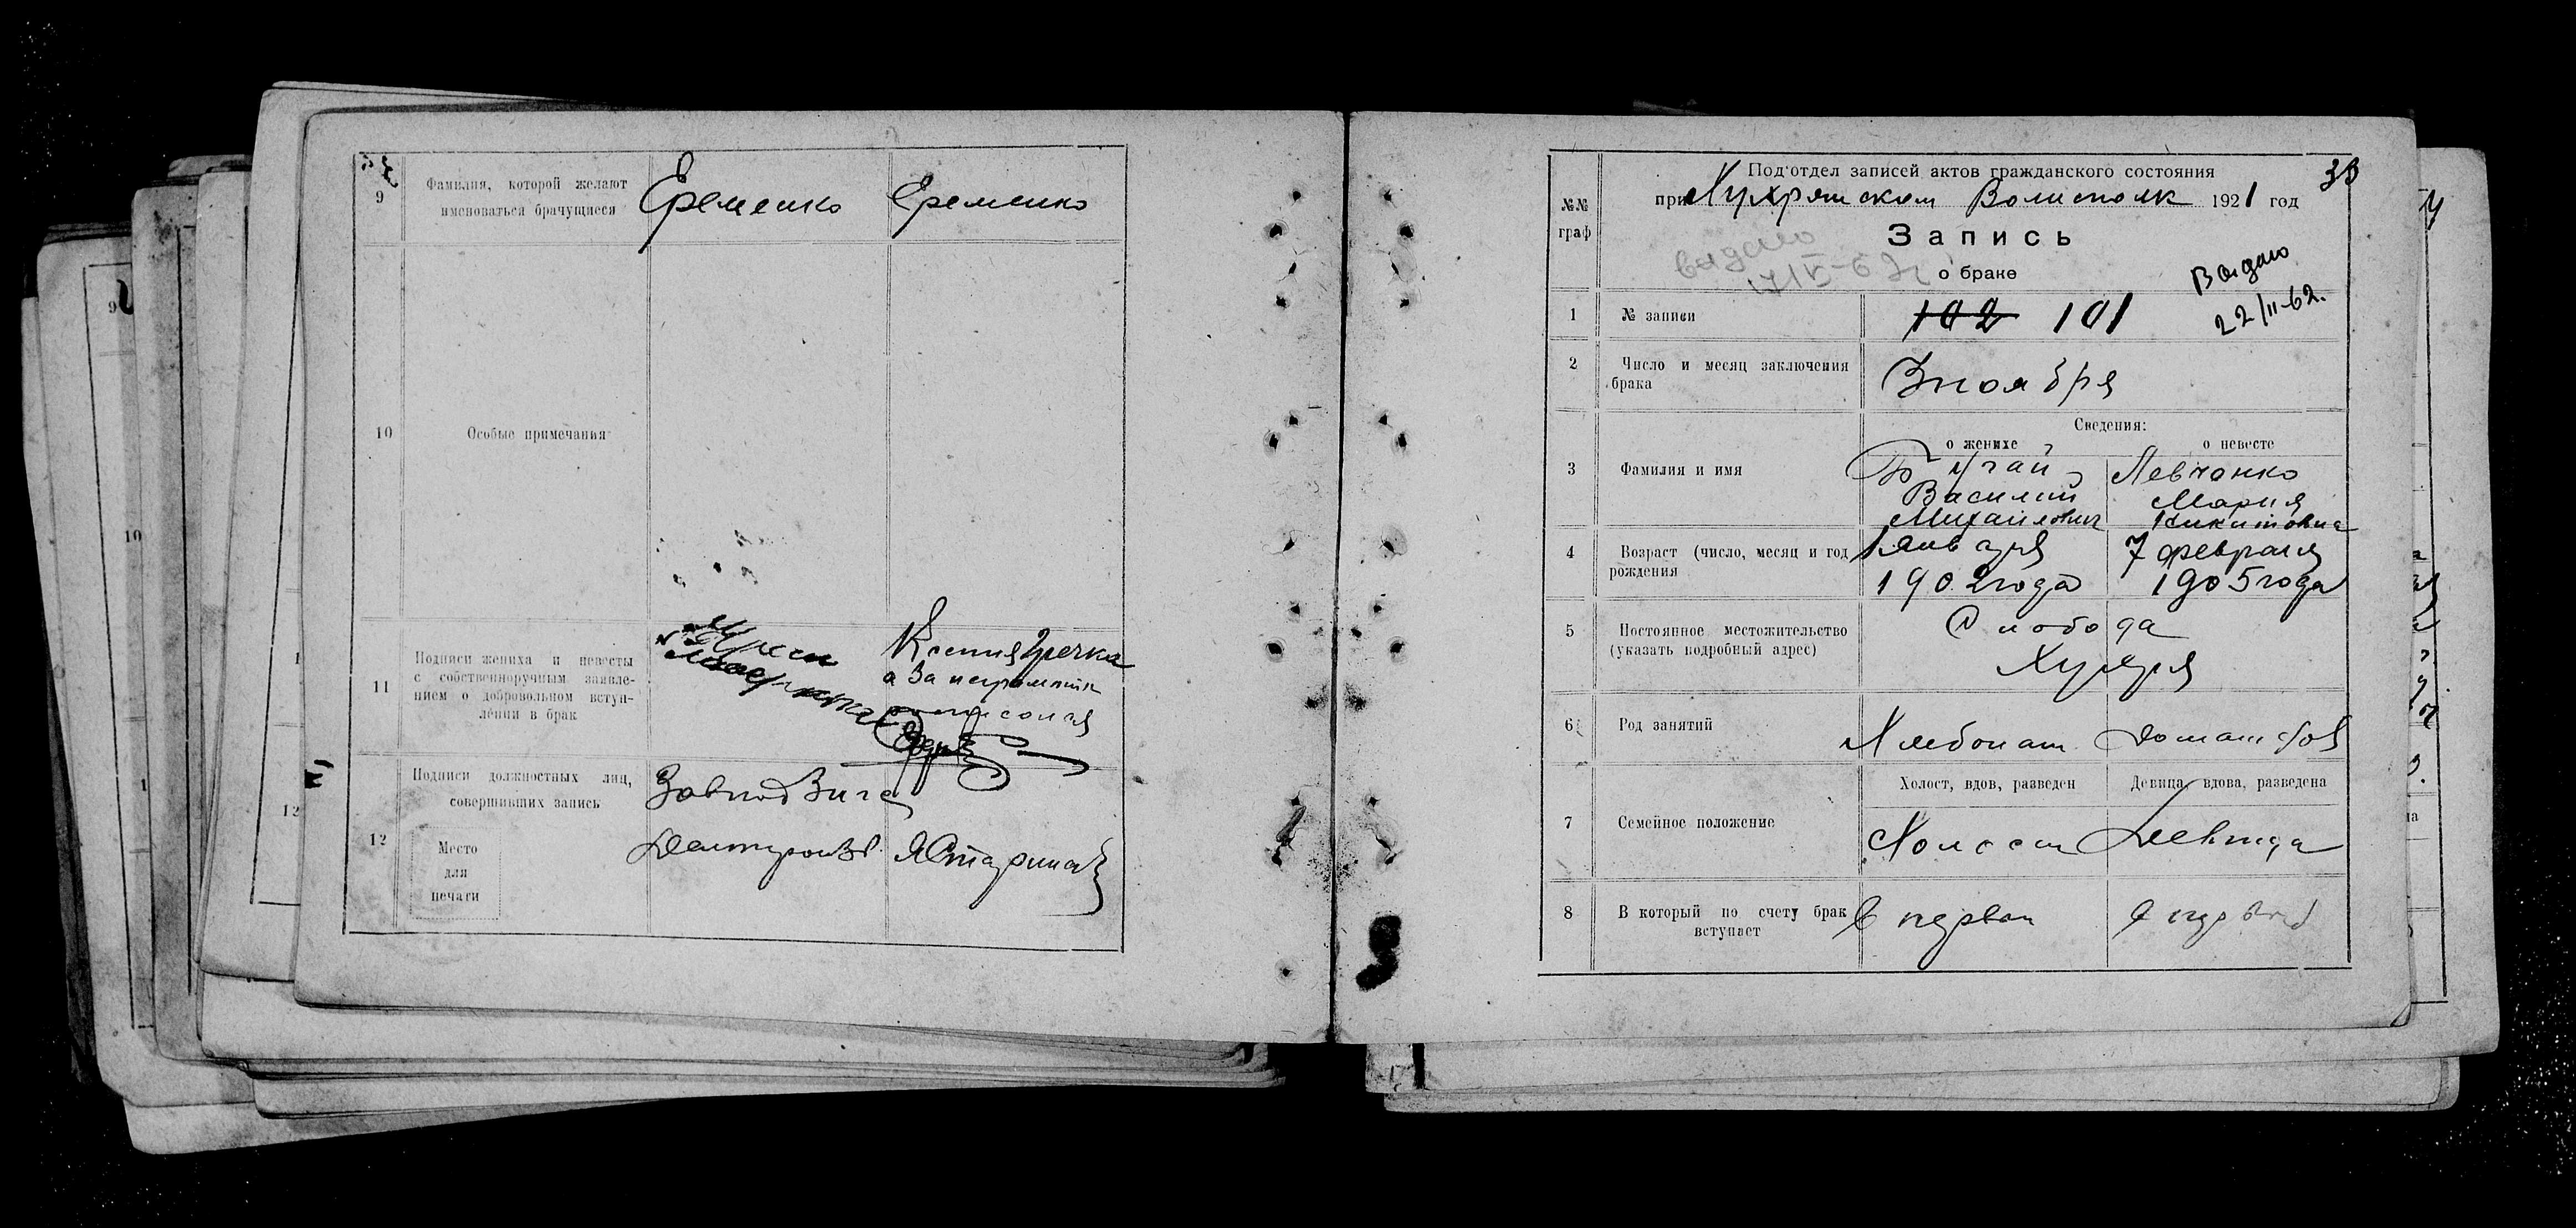 9
Фамилия, которой желают
именоваться брачущиеся
Еременко
Еременко
10
Особые примечания
11
Подписи жениха и невесты
с собственноручным заявле-
нием о добровольном вступ-
лении в брак
Ксения Гречка
а за неграмотн
12
Подписи должностных лиц,
совершивших запись
Место
для
печати
№№
граф
Под‘отдел записей актов гражданского состояния
при Волисполк 1921 год
39
Запись
о браке
выдано
Выдано
22/II-62.
1
№ записи
102 101
2
Число и месяц заключения
брака
3 ноября
Сведения:
о женихе
о невесте
3
Фамилия и имя
Бугай
Василий
Михайлович
Левченко
Мария
Никитовна
4
Возраст (число, месяц и год
рождения
1 января
1902 года
7 февраля
1905 года
5
Постоянное местожительство
(указать подробный адрес)
Слобода
6
Род занятий
Хлебопаш
7
Семейное положение
Холост, вдов, разведен
Девица, вдова, разведена
Холост
Девица
8
В который по счету брак
вступает
в первый
в первый